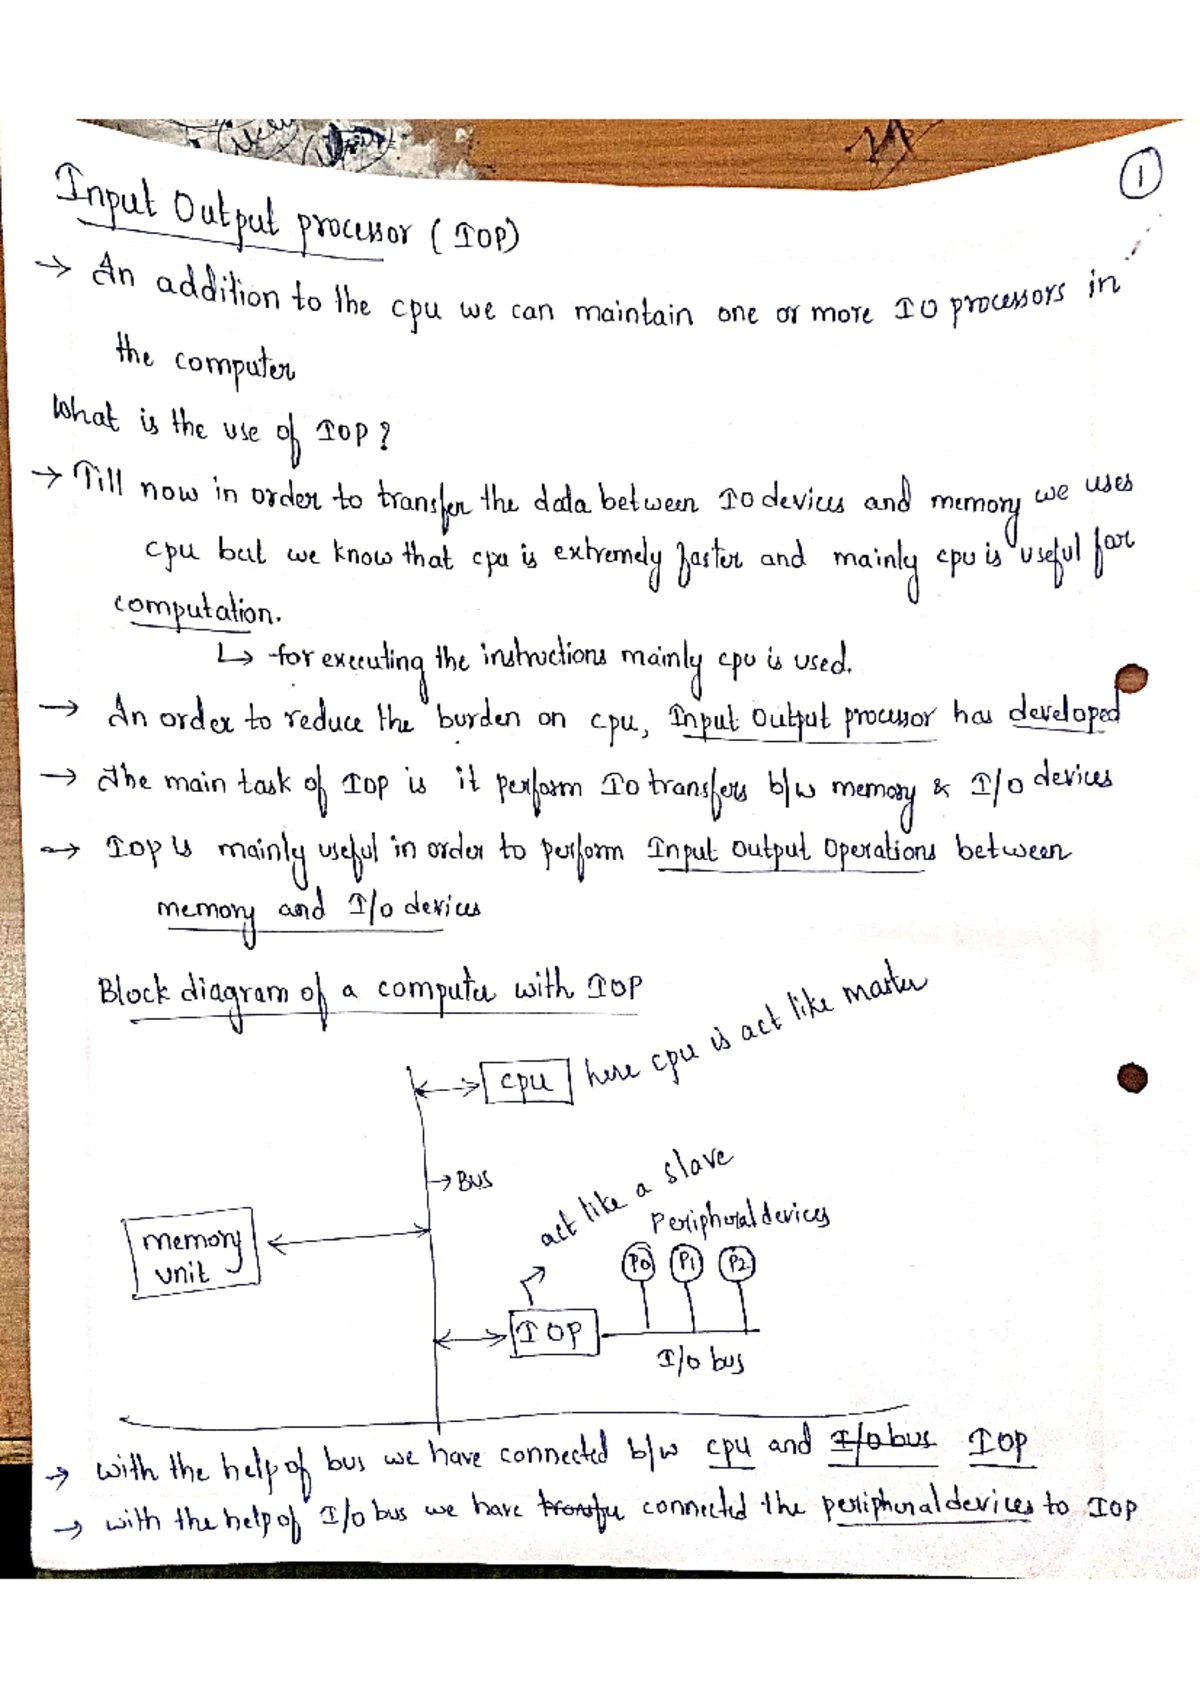 1
Input Output processor (IOP)
→ An addition to the cpu we can maintain one or more IO processors in
the computer
What is the use of IOP?
→ Till now in order to transfer the data between IO devices and memory we uses
cpu but we know that cpu is extremely faster and mainly cpu is useful for
computation.
↳ for executing the instructions mainly cpu is used.
→ An order to reduce the burden on cpu, Input Output processor has developed
→ The main task of IOP is it perform IO transfers b/w memory & I/O devices
→ IOP is mainly useful in order to perform Input Output Operations between
memory and I/O devices
Block diagram of a computer with IOP
cpu here cpu is act like master
→ BUS
act like a slave
Peripheral devices
memory
unit
P0 P1 P2
IOP
I/o bus
→ with the help of bus we have connected b/w cpu and I/o bus IOP
→ with the help of I/o bus we have transfer connected the peripheral devices to IOP